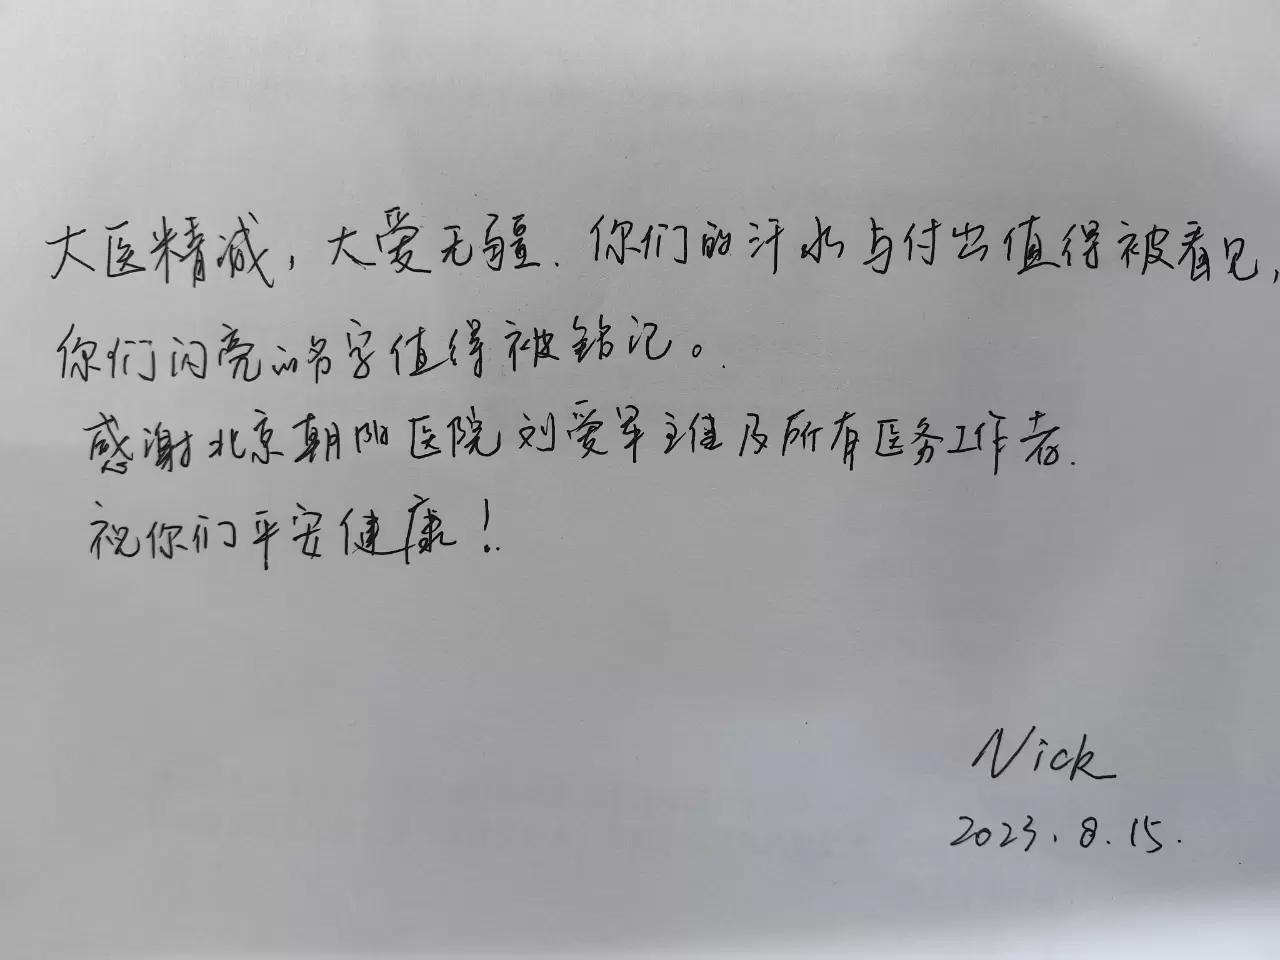 大医精减，大爱无疆.你们的汗水与付出值得被看见，
你们闪亮的名字值得被铭记。
感谢北京朝阳医院刘爱军主任及所有医务工作者.
祝你们平安健康！
Nick
2023.8.15.